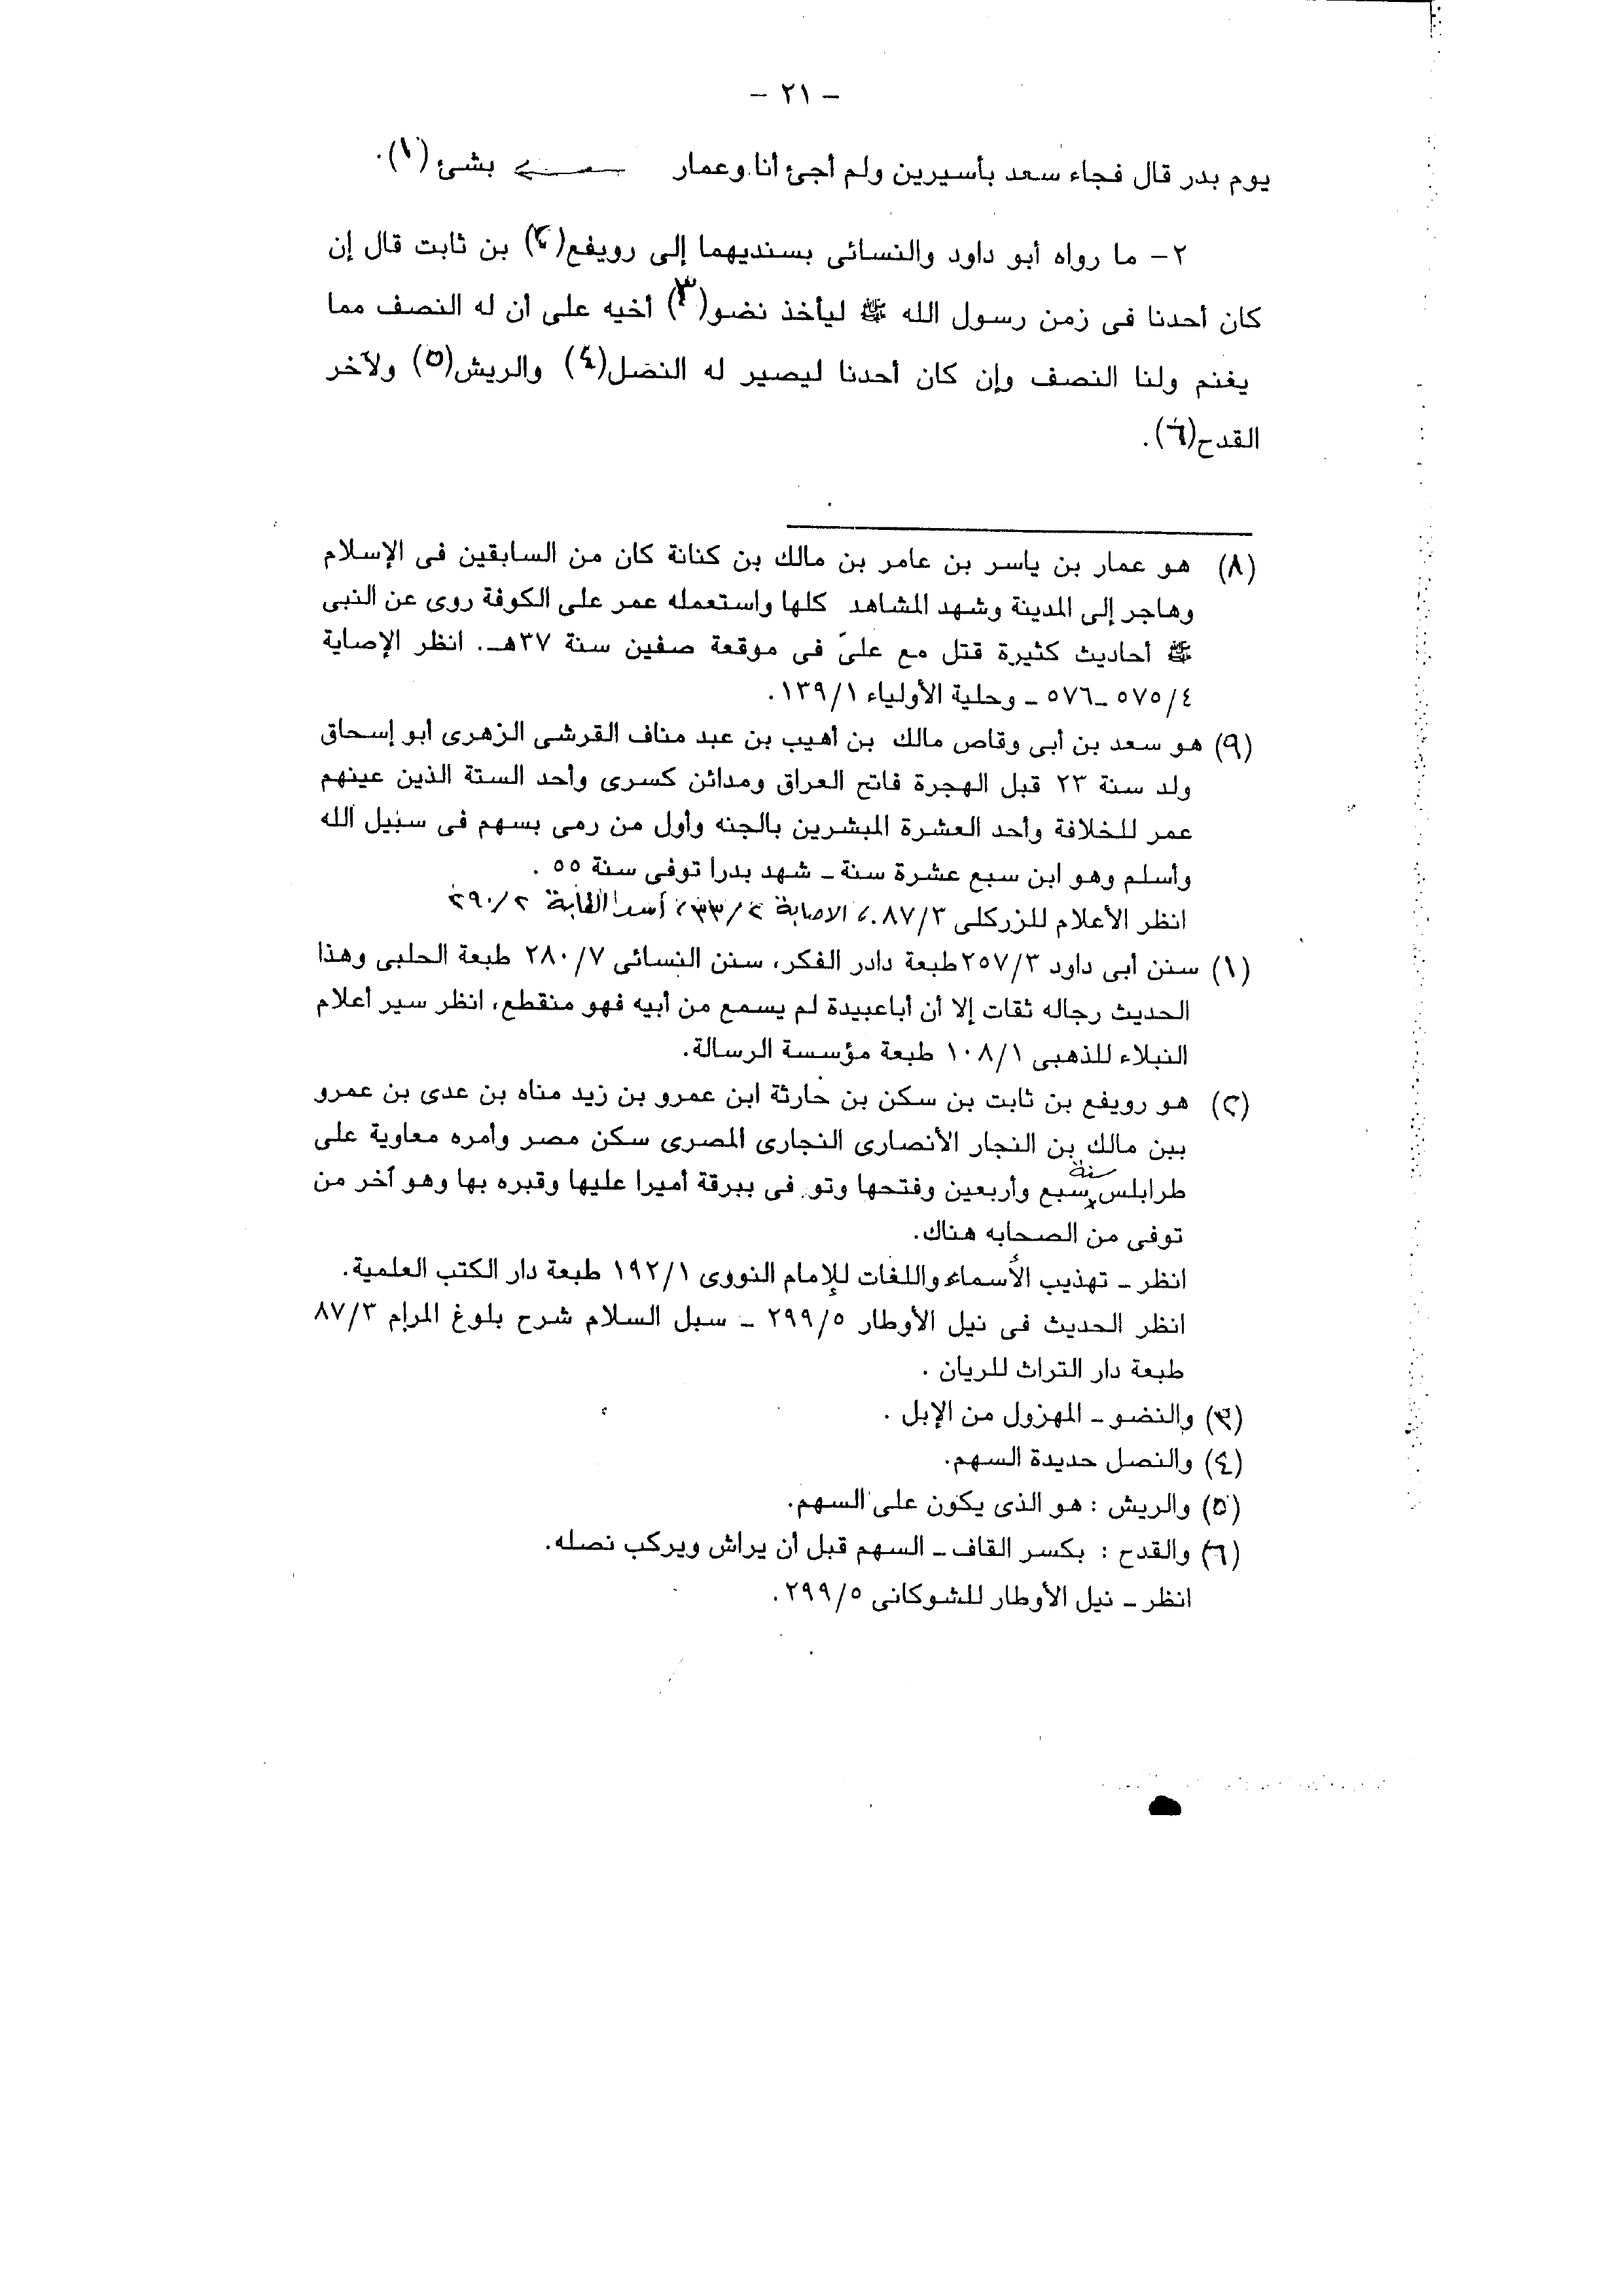 - ٢١ -
يوم بدر قال فجاء سعد بأسيرين ولم أجئ أنا وعمار بشئ (١).
٢- ما رواه أبو داود والنسائى بسنديهما إلى رويفع(٢) بن ثابت قال إن
كان أحدنا فى زمن رسول الله ﷺ ليأخذ نضو(٣) أخيه على أن له النصف مما
يغنم ولنا النصف وإن كان أحدنا ليصير له النصل(٤) والريش(٥) ولآخر
القدح(٦).
(٨) هو عمار بن ياسر بن عامر بن مالك بن كنانة كان من السابقين فى الإسلام
وهاجر إلى المدينة وشهد المشاهد كلها واستعمله عمر على الكوفة روى عن النبى
ﷺ أحاديث كثيرة قتل مع علىّ فى موقعة صفين سنة ٣٧هـ. انظر الإصاية
٤/ ٥٧٥ـ٥٧٦ ـ وحلية الأولياء ١٣٩/١.
(٩) هو سعد بن أبى وقاص مالك بن أهيب بن عبد مناف القرشى الزهرى أبو إسحاق
ولد سنة ٢٣ قبل الهجرة فاتح العراق ومدائن كسرى وأحد الستة الذين عينهم
عمر للخلافة وأحد العشرة المبشرين بالجنه وأول من رمى بسهم فى سبيل الله
وأسلم وهو ابن سبع عشرة سنة ـ شهد بدرا توفى سنة ٥٥ .
انظر الأعلام للزركلى ٨٧/٣، الاصابة ٣٣/٢، أسد الغابة ٢٩٠/٢
(١) سنن أبى داود ٢٥٧/٣ طبعة دادر الفكر، سنن النسائى ٢٨٠/٧ طبعة الحلبى وهذا
الحديث رجاله ثقات إلا أن أباعبيدة لم يسمع من أبيه فهو منقطع، انظر سير أعلام
النبلاء للذهبى ١٠٨/١ طبعة مؤسسة الرسالة.
(٢) هو رويفع بن ثابت بن سكن بن حارثة ابن عمرو بن زيد مناه بن عدى بن عمرو
ببن مالك بن النجار الأنصارى النجارى المصرى سكن مصر وأمره معاوية على
طرابلس سنة سبع وأربعين وفتحها وتو فى ببرقة أميرا عليها وقبره بها وهو آخر من
توفى من الصحابه هناك.
انظر ـ تهذيب الأسماء واللغات للإمام النووى ١٩٢/١ طبعة دار الكتب العلمية.
انظر الحديث فى نيل الأوطار ٢٩٩/٥ ـ سبل السلام شرح بلوغ المرام ٨٧/٣
طبعة دار التراث للريان .
(٣) والنضو ـ المهزول من الإبل .
(٤) والنصل حديدة السهم.
(٥) والريش : هو الذى يكون على السهم.
(٦) والقدح : بكسر القاف ـ السهم قبل أن يراش ويركب نصله.
انظر ـ نيل الأوطار للشوكانى ٢٩٩/٥.